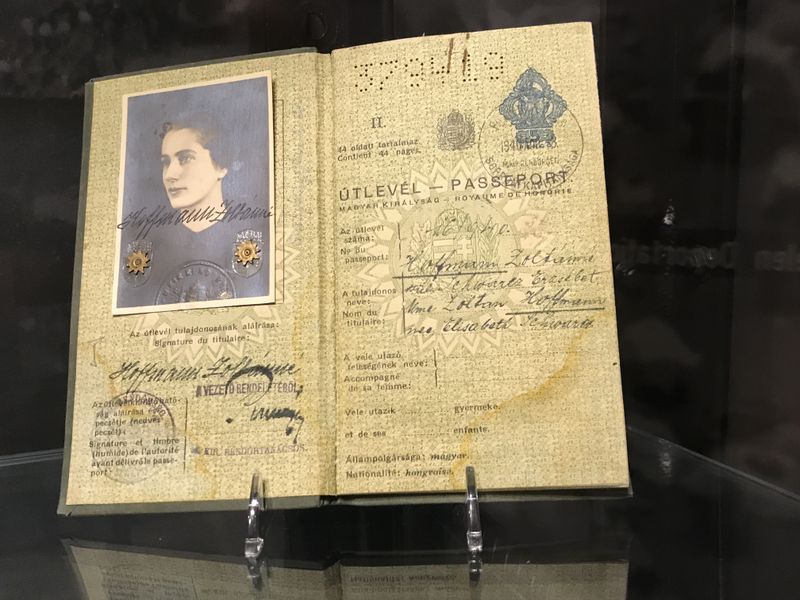 Hoffmann Zoltánné
Az útlevél tulajdonosának aláirása:
Signature du titulaire:
Hoffmann Zoltánné
A VEZETŐ RENDELETÉRŐL
Az útlevélkiállító ható-
ság aláirása és
pecsétje (nedves
pecsét):
Signature et timbre
(humide) de l'autorité
ayant délivré le passe-
port:
M. KIR. RENDŐRTANÁCSOS.
379419
II.
44 oldalt tartalmaz.
Contient 44 pages.
ÚTLEVÉL — PASSEPORT
MAGYAR KIRÁLYSÁG - ROYAUME DE HONGRIE
Az útlevél
száma:
No du
passeport:
Hoffmann Zoltánné
A tulajdonos
neve:
szül. Schwarcz Erzsébet,
Mme Zoltán Hoffmann
Nom du
titulaire:
née Elisabeth Schwarcz
A vele utazó
feleségének neve:
Accompagné
de sa femme:
Vele utazik gyermeke.
et de ses enfants.
Állampolgársága: magyar.
Nationalité: hongroise.